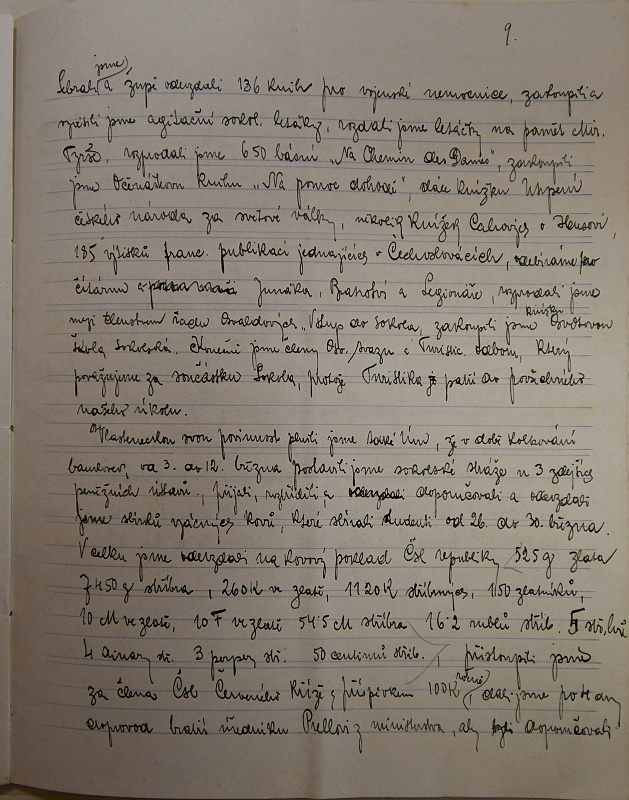 9.
Sebrali jsme a župě odevzdali 136 knih pro vojenské nemocnice, zakoupili a
jsme agitační sokol. letáky, rozdali jsme letáčky na paměť Mir.
Tyrše, rozprodali jsme 650 básní „Na Chemin des Dames", zakoupili
jsme Očenáškovu knihu „Na pomoc dohodě", dále knížku Utrpení
českého národa za světové války, několik knížek Calvojes o Husovi,
185 výtisků franc. publikací jednajících o Čechoslovácích, odebíráme pro
čítárnu Junáka, Bratrství a Legionáře, rozprodali jsme
mezi členstvem řadu Osvaldových „Vstup do Sokola, zakoupili jsme knížku
školu sokolská. Konečně jsme členy Osv. svazu a Turistic. odboru, který
považujeme za součástku Sokola, protože Turistika je patří do povšechného
našeho úkolu.
Vlasteneckou svou povinnost plnili jsme také tím, že v době kolkování
bankovek, od 3. do 12. března postavili jsme sokolské stráže u 3 zdejších
peněžních ústavů, přijali, roztřídili a odevzdali doporučovali a odevzdali
jsme sbírku vzácných kovů, které sbírali studenti od 26. do 30. března.
V celku jsme odevzdali na kovový poklad Čsl republiky 525 g zlata
7450 g stříbra, 260 K ve zlatě, 1120 K stříbrných, 150 zlatníků,
10 M ve zlatě, 10 F ve zlatě 54·5 M stříbra 16·2 rublů stříb. 5
4 dinary stř. 3 perpery stř. 50 centimů stříb., přistoupili jsme
za člena Čsl Červeného Kříže s příspěvkem 100 K ročně, dali jsme po 4 dny
doprovod bratu úředníku z ministerstva, aby doporučovali